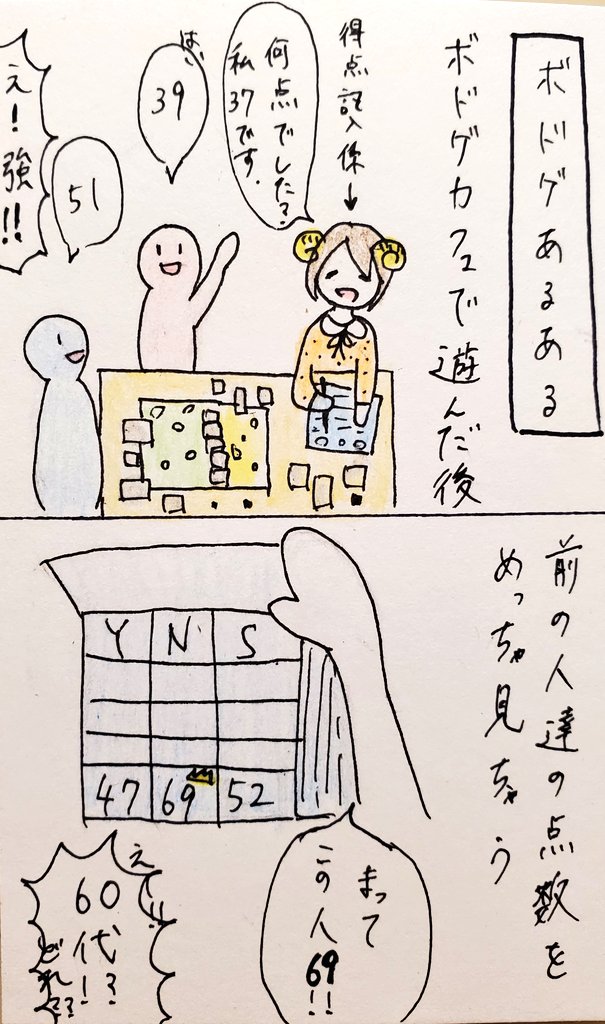 ボドゲあるある
ボドゲカフェで遊んだ後
得点記入係→
何点でした?
私37です.
はい
39
51
え!強!!
前の人達の点数を
めっちゃ見ちゃう
Y N S
47 69 52
まって
この人69!!
え!!
60代!?
どれ??